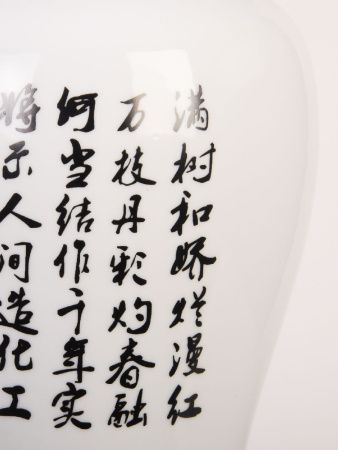 满树和娇烂漫红
万枝丹彩灼春融
何当结作千年实
将示人间造化工